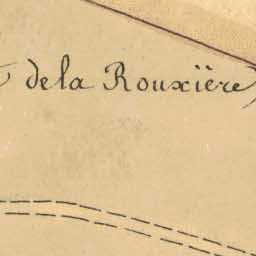 dela Rouxière)